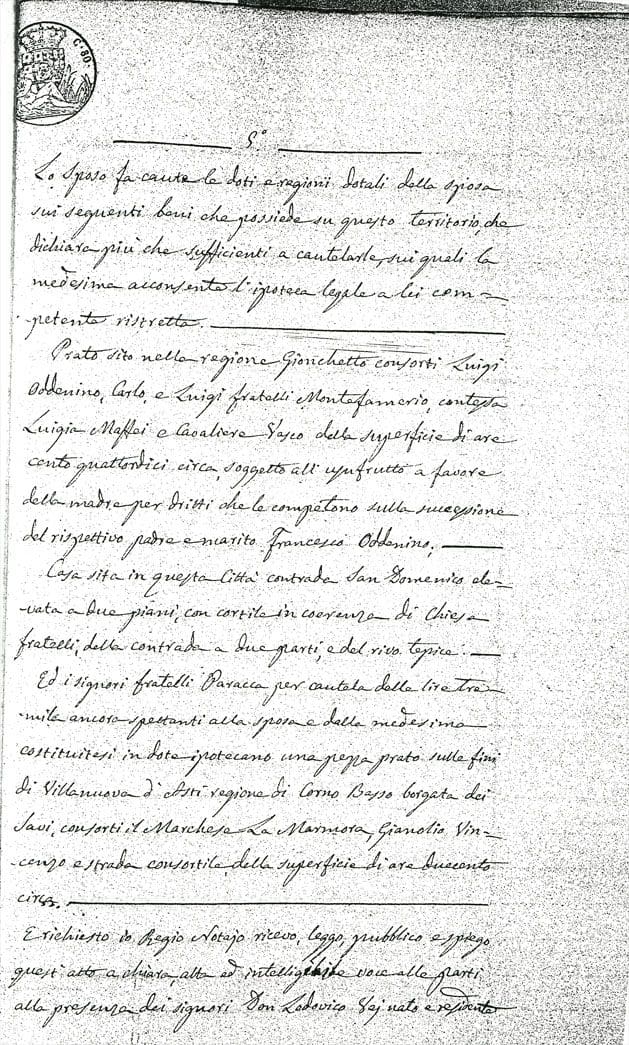 C. 80.
5°
Lo Sposo fa caute le doti e regioni dotali della sposa
sui seguenti beni che possiede su questo territorio, che
dichiara più che sufficienti a cautelarle, sui quali la
medesima acconsente l'ipoteca legale a lei com=
petente ristretta.
Prato sito nella regione Gionchetto consorti Luigi
Oddenino, Carlo, e Luigi fratelli Montefamerio, contessa
Luigia Maffei e Cavaliere Vasco della superficie di are
cento quattordici circa, soggetto all'usufrutto a favore
della madre per dritti che le competono sulla successione
del rispettivo padre e marito Francesco Oddenino;
Casa sita in questa Città contrada San Domenico ele=
vata a due piani, con cortile in coerenza di Chiesa
fratelli, della contrada a due parti, e del rivo tepice.
Ed i signori fratelli Paracca per cautela delle lire tre
mila ancora spettanti alla sposa e dalla medesima
costituitesi in dote ipotecano una pezza prato sulle fini
di Villanuova d'Asti regione di Corno Basso borgata dei
Savi, consorti il Marchese La Marmora, Gianolio, Vin=
cenzo e strada consortile, della superficie di are duecento
circa.
E richiesto io Regio Notajo ricevo, leggo, pubblico e spiego
quest'atto a chiara, alta ed intelligibile voce alle parti
alla presenza dei signori Don Lodovico Vej nato e residente